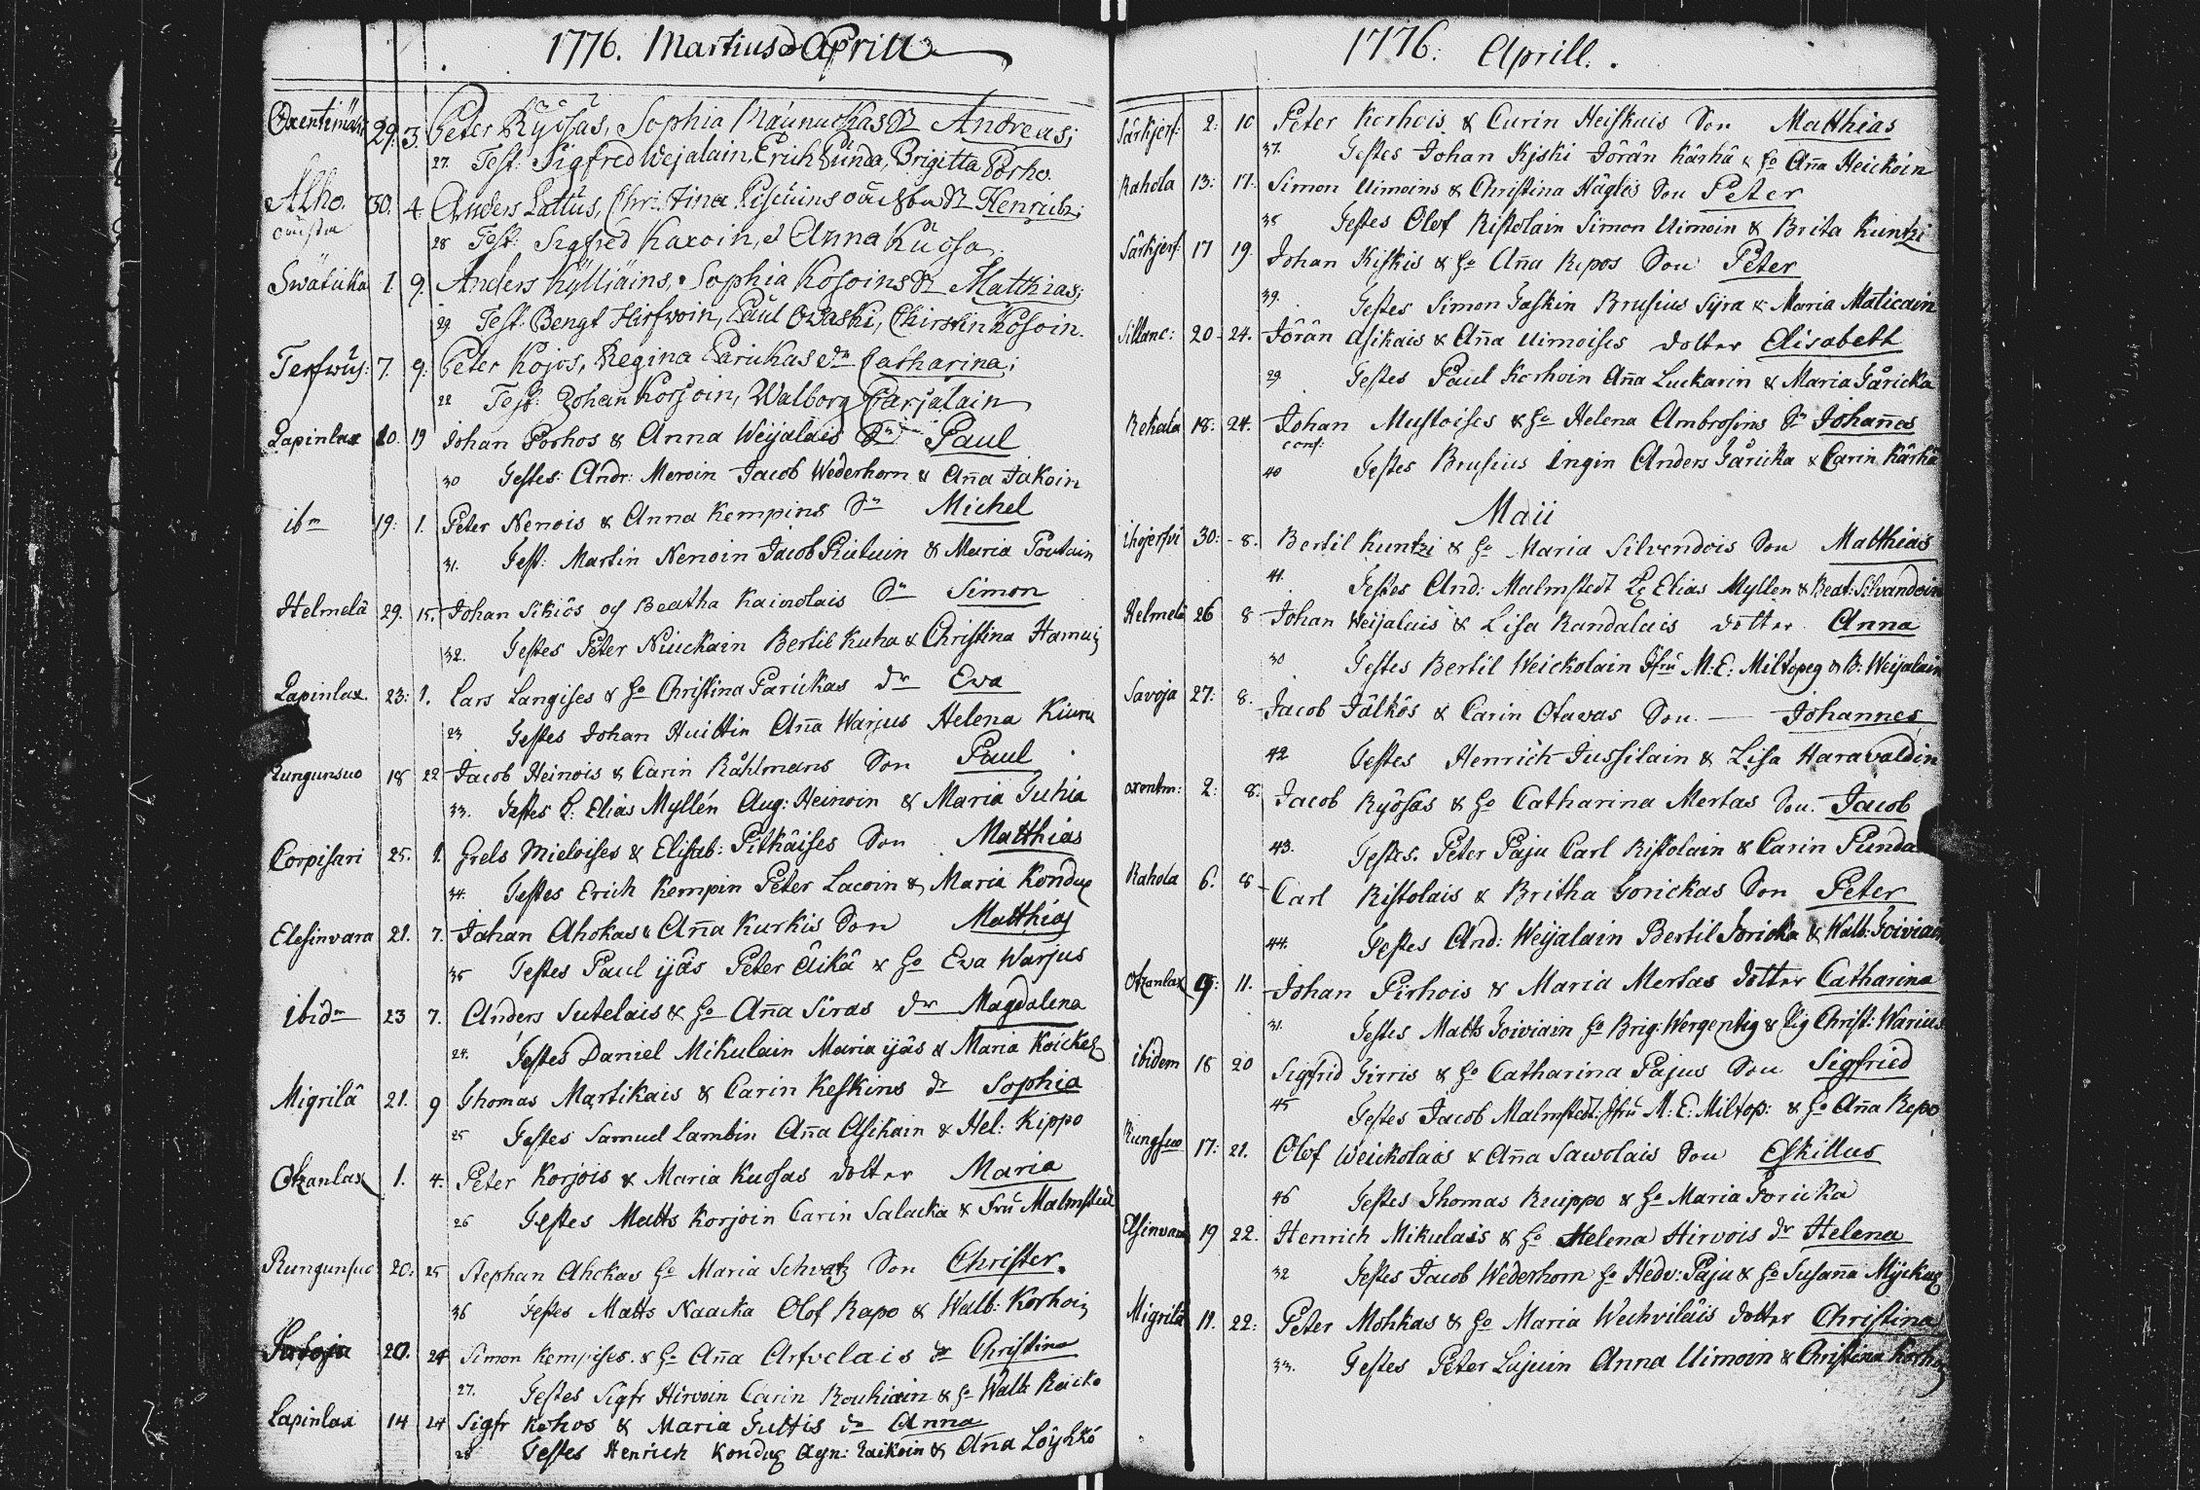 1776. Martius & Aprill
29. 3. Peter Ryösas, Sophia Maunuckas Sn Andreas;
27. Test. Sigfred Wejalain, Erich Punda, Brigitta Porho.
Alho. 30. 4. Anders Lattus, Christina Sn Henrich;
28 Test: Sigfred Karoin, & Anna Kuosa.
1. 9. Anders Kylliäins, Sophia Kosoins Sn Matthias;
29 Test: Bengt Hirfwoin, Paul Owaski, Chirstin Kosoin.
7. 9. Peter Kojos, Regina Parickas dr Catharina;
22 Test: Johan Korjoin, Walborg Carjalain
Lapinlax 10. 19 Johan Porhos & Anna Weijalais Sn Paul
30 Testes: Andr: Meroin Jacob Wederhorn & Anna Jakoin
ibm 19. 1. Peter Nenois & Anna Kempins Sn Michel
31. Test: Martin Nenoin Jacob & Maria Poutain
Helmelä 29. 15. Johan Sikiös och Beatha Kainolais Sn Simon
32. Testes Peter Niuckain Bertil Kuha & Christina
Lapinlax 23: 1. Lars Langises & Ho Christina Parickas dr Eva
23 Testes Johan Huittin Anna Warjus Helena Kiuru
Rungunsuo 18 22 Jacob Heinois & Carin Råhlmans Son Paul
33. Testes L: Elias Myllén Aug: Heinoin & Maria Tuhia
Corpisari 25. 1. Grels Mieloises & Elisab: Pitkäises Son Matthias
34. Testes Erich Kempin Peter Lacoin & Maria Konduc
Elesinvara 21. 7. Johan Ahokas & Anna Kurkis Son Matthias
35 Testes Paul ijäs Peter Äikä & Ho Eva Warjus
ibidm 23 7. Anders Sutelais & Ho Anna Siras dr Magdalena
24. Testes Daniel Mikulain Maria ijäs & Maria
Migrilä 21. 9 Thomas Martikais & Carin Keskins dr Sophia
25 Testes Samuel Lambin Anna Asikain & Hel: Kippo
Otzanlax 1. 4. Peter Korjois & Maria Kuosas dotter Maria
26 Testes Matts Korjoin Carin Salacka & Fru Malmstedt
Rungunsuo 20: 25 Stephan Ahokas Ho Maria Schvatz Son Christer.
36 Testes Matts Naacka Olof Rapo & Walb: Korhoin
20. 24 Simon Kempises. & Ho Anna Arfvelais dr Christina
27. Testes Sigfr Hirvoin Carin Rouhiain & Ho Walb Raicko
Lapinlax 14 24 Sigfr Kohos & Maria Tuttis dr Anna
28 Testes Henrich Konduc Agn: Raikoin & Anna Löyhkö
1776: Aprill.
Särkjerf: 2: 10 Peter Korhois & Carin Heiskais Son Matthias
37. Testes Johan Kjski Jörän Kärhä & Ho Anna Heickoin
Rahola 13: 17. Simon Uimoins & Christina Häglis Son Peter
38 Testes Olof Ristolain Simon Uimoin & Brita Kuntzi
Särkjerf: 17 19. Johan Kiskis & Ho Anna Repos Son Peter
39. Testes Simon Taskin Brusius Syra & Maria Maticain
Sillanc: 20 - 24. Jörän Asikais & Anna Uimoises dotter Elisabett
29 Testes Paul Korhoin Anna Luckarin & Maria Täricka
Rekala 18. 24. Johan Mustoises & Ho Helena Ambrosins Sn Johannes
conf:
40 Testes Brusius Ingin Anders Täricka & Carin Kärhä
Maii
Ihojerfvi 30: - 8. Bertil Kuntzi & Ho Maria Silvendois Son Matthias
41. Testes And: Malmstedt Lg Elias Myllen & Beat: Silvandoin
Helmelä 26 8 Johan Weijalais & Lisa Randalais dotter Anna
30 Testes Bertil Weickolain Jfru M: E: Miltopeg & B: Weijalain
Savoja 27: 8. Jacob Jälkös & Carin Otavas Son. — Johannes
42 Testes Henrich Jussilain & Lisa Haravaldin
oxentm: 2: 8: Jacob Ryösas & Ho Catharina Mertas Son. Jacob
43. Testes. Peter Paju Carl Ristolain & Carin Punda
Rahola 6. 8 Carl Ristolais & Britha Torickas Son Peter
44. Testes And: Weijalain Bertil Toricka & Walb: Toiviain
Otzanlax 9: 11. Johan Pirhois & Maria Mertas dotter Catharina
31. Testes Matts Toiviain Ho Brig: Wergentig & Pig Christ: Warius
ibidem 18 20 Sigfrid Tirris & Ho Catharina Pajus Son Sigfried
45 Testes Jacob Malmstedt: Jfru M: E: Miltop: & Ho Anna Repo
Rungsuo 17: 21. Olof Weickolais & Anna Sawolais Son Eskillus
46 Testes Thomas Kuippo & Ho Maria Toricka
Elsinvara 19 22. Henrich Mikulais & Ho Helena Hirvois dr Helena
32 Testes Jacob Wederhorn Ho Hedv: Paju & Ho Susanna
Migrilä 11. 22: Peter Mohkas & Ho Maria Wechviläis dotter Christina
33. Testes Peter Lujuin Anna Uimoin & Christina